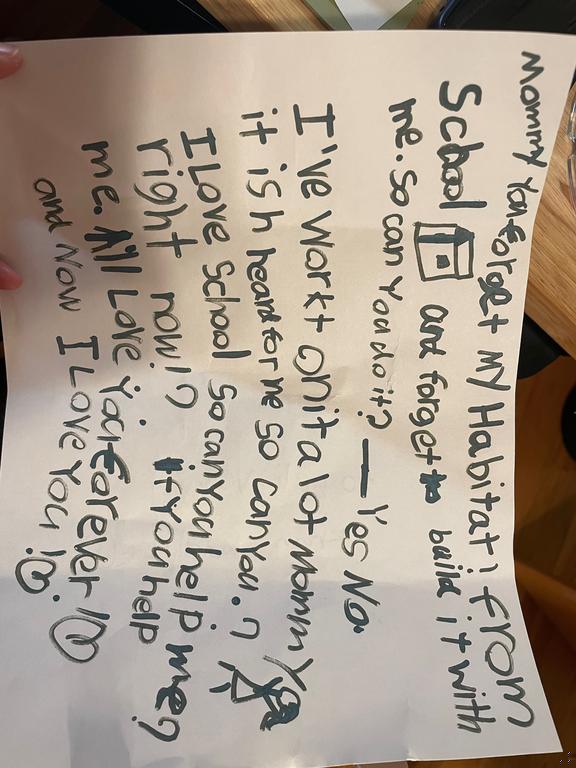 Mommy You forget MY Habitat! from
School and forget to build it with
me. So can You do it? — Yes No.
I've workt on it a lot Mommy
it is h heard for me so can You. ?
I Love School So can You help me?
right now!? if You help
me. I'll Love You forever!♡
and Now I Love You!♡